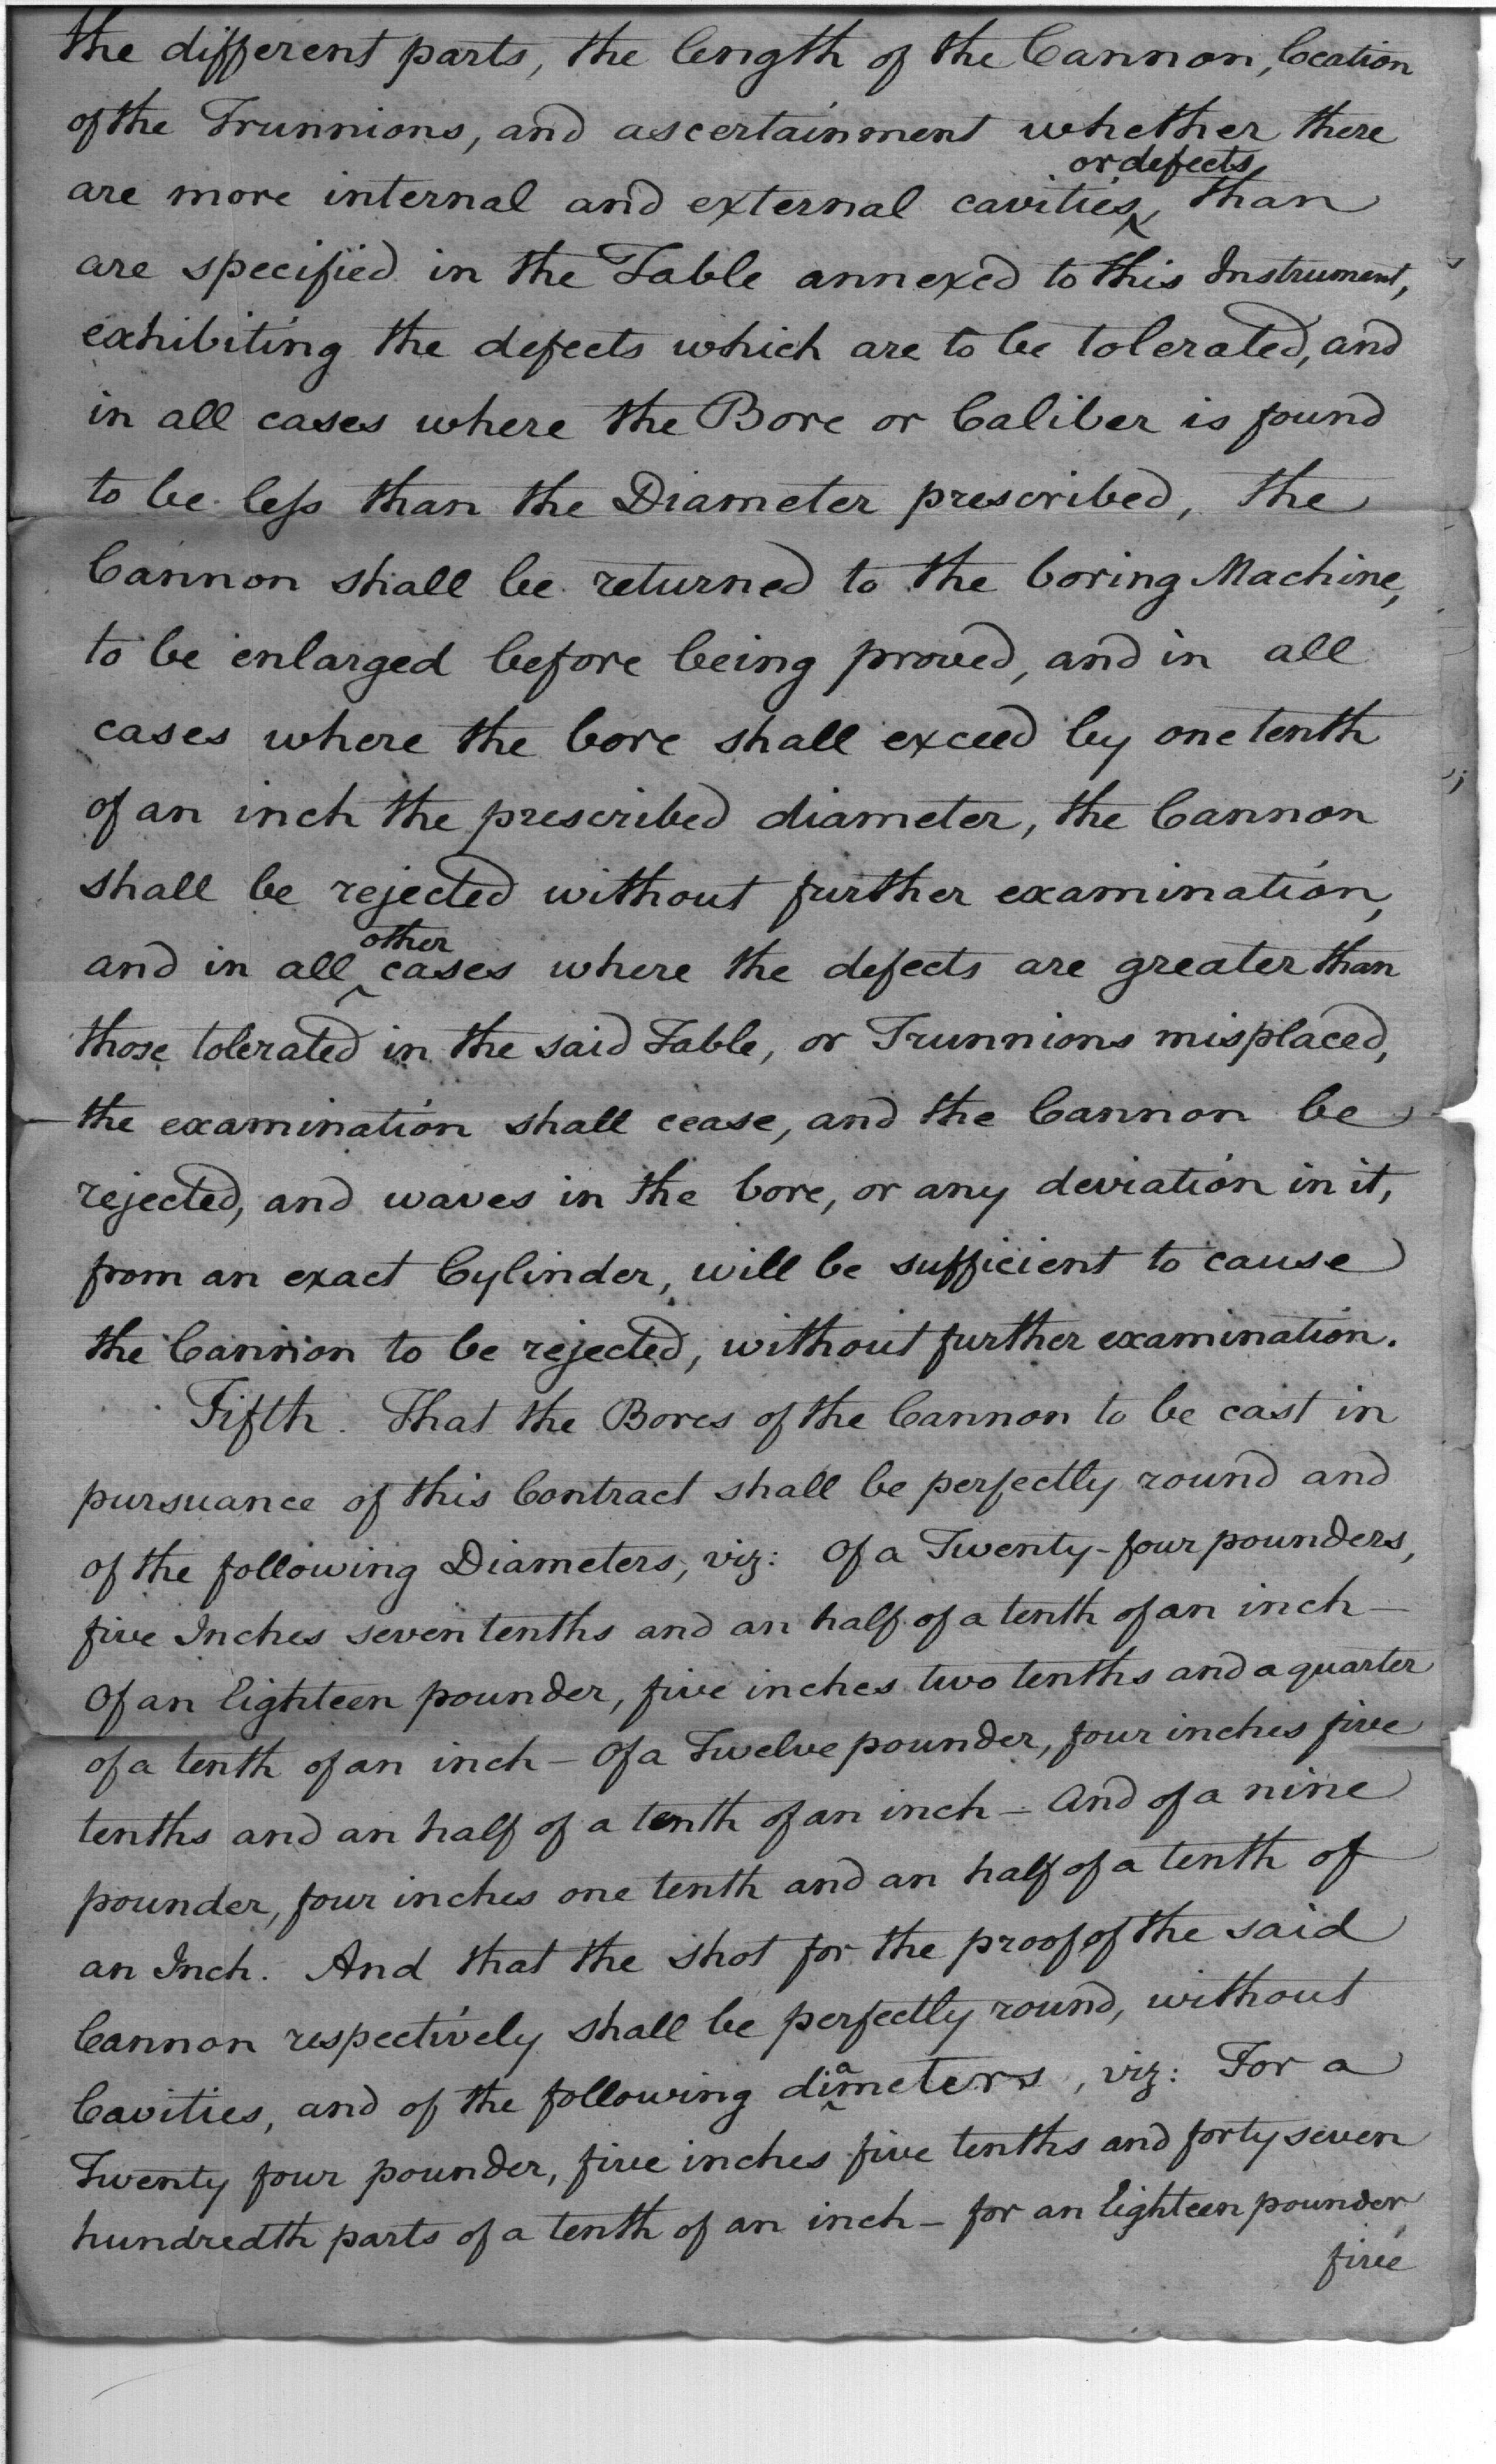 the different parts, the length of the Cannon, location
of the Trunnions, and ascertainment whether there
or defects
are more internal and external cavities, than
are specified in the Table annexed to this Instrument,
exhibiting the defects which are to be tolerated, and
in all cases where the Bore or Caliber is found
to be less than the Diameter prescribed, the
Cannon shall be returned to the boring Machine,
to be enlarged before being proved, and in all
cases where the bore shall exceed by one tenth
of an inch the prescribed diameter, the Cannon
shall be rejected without further examination,
other
and in all ‸ cases where the defects are greater than
those tolerated in the said Table, or Trunnions misplaced,
the examination shall cease, and the Cannon be
rejected, and waves in the bore, or any deviation in it,
from an exact Cylinder, will be sufficient to cause
the Cannon to be rejected, without further examination.
Fifth. That the Bores of the Cannon to be cast in
pursuance of this Contract shall be perfectly round and
of the following Diameters, viz: Of a Twenty-four pounders,
five Inches seven tenths and an half of a tenth of an inch —
Of an Eighteen pounder, five inches two tenths and a quarter
of a tenth of an inch — Of a Twelve pounder, four inches five
tenths and an half of a tenth of an inch — And of a nine
pounder, four inches one tenth and an half of a tenth of
an Inch. And that the shot for the proof of the said
Cannon respectively shall be perfectly round, without
Cavities, and of the following diameters, viz: For a
Twenty four pounder, five inches five tenths and forty seven
hundredth parts of a tenth of an inch — for an Eighteen pounder,
five